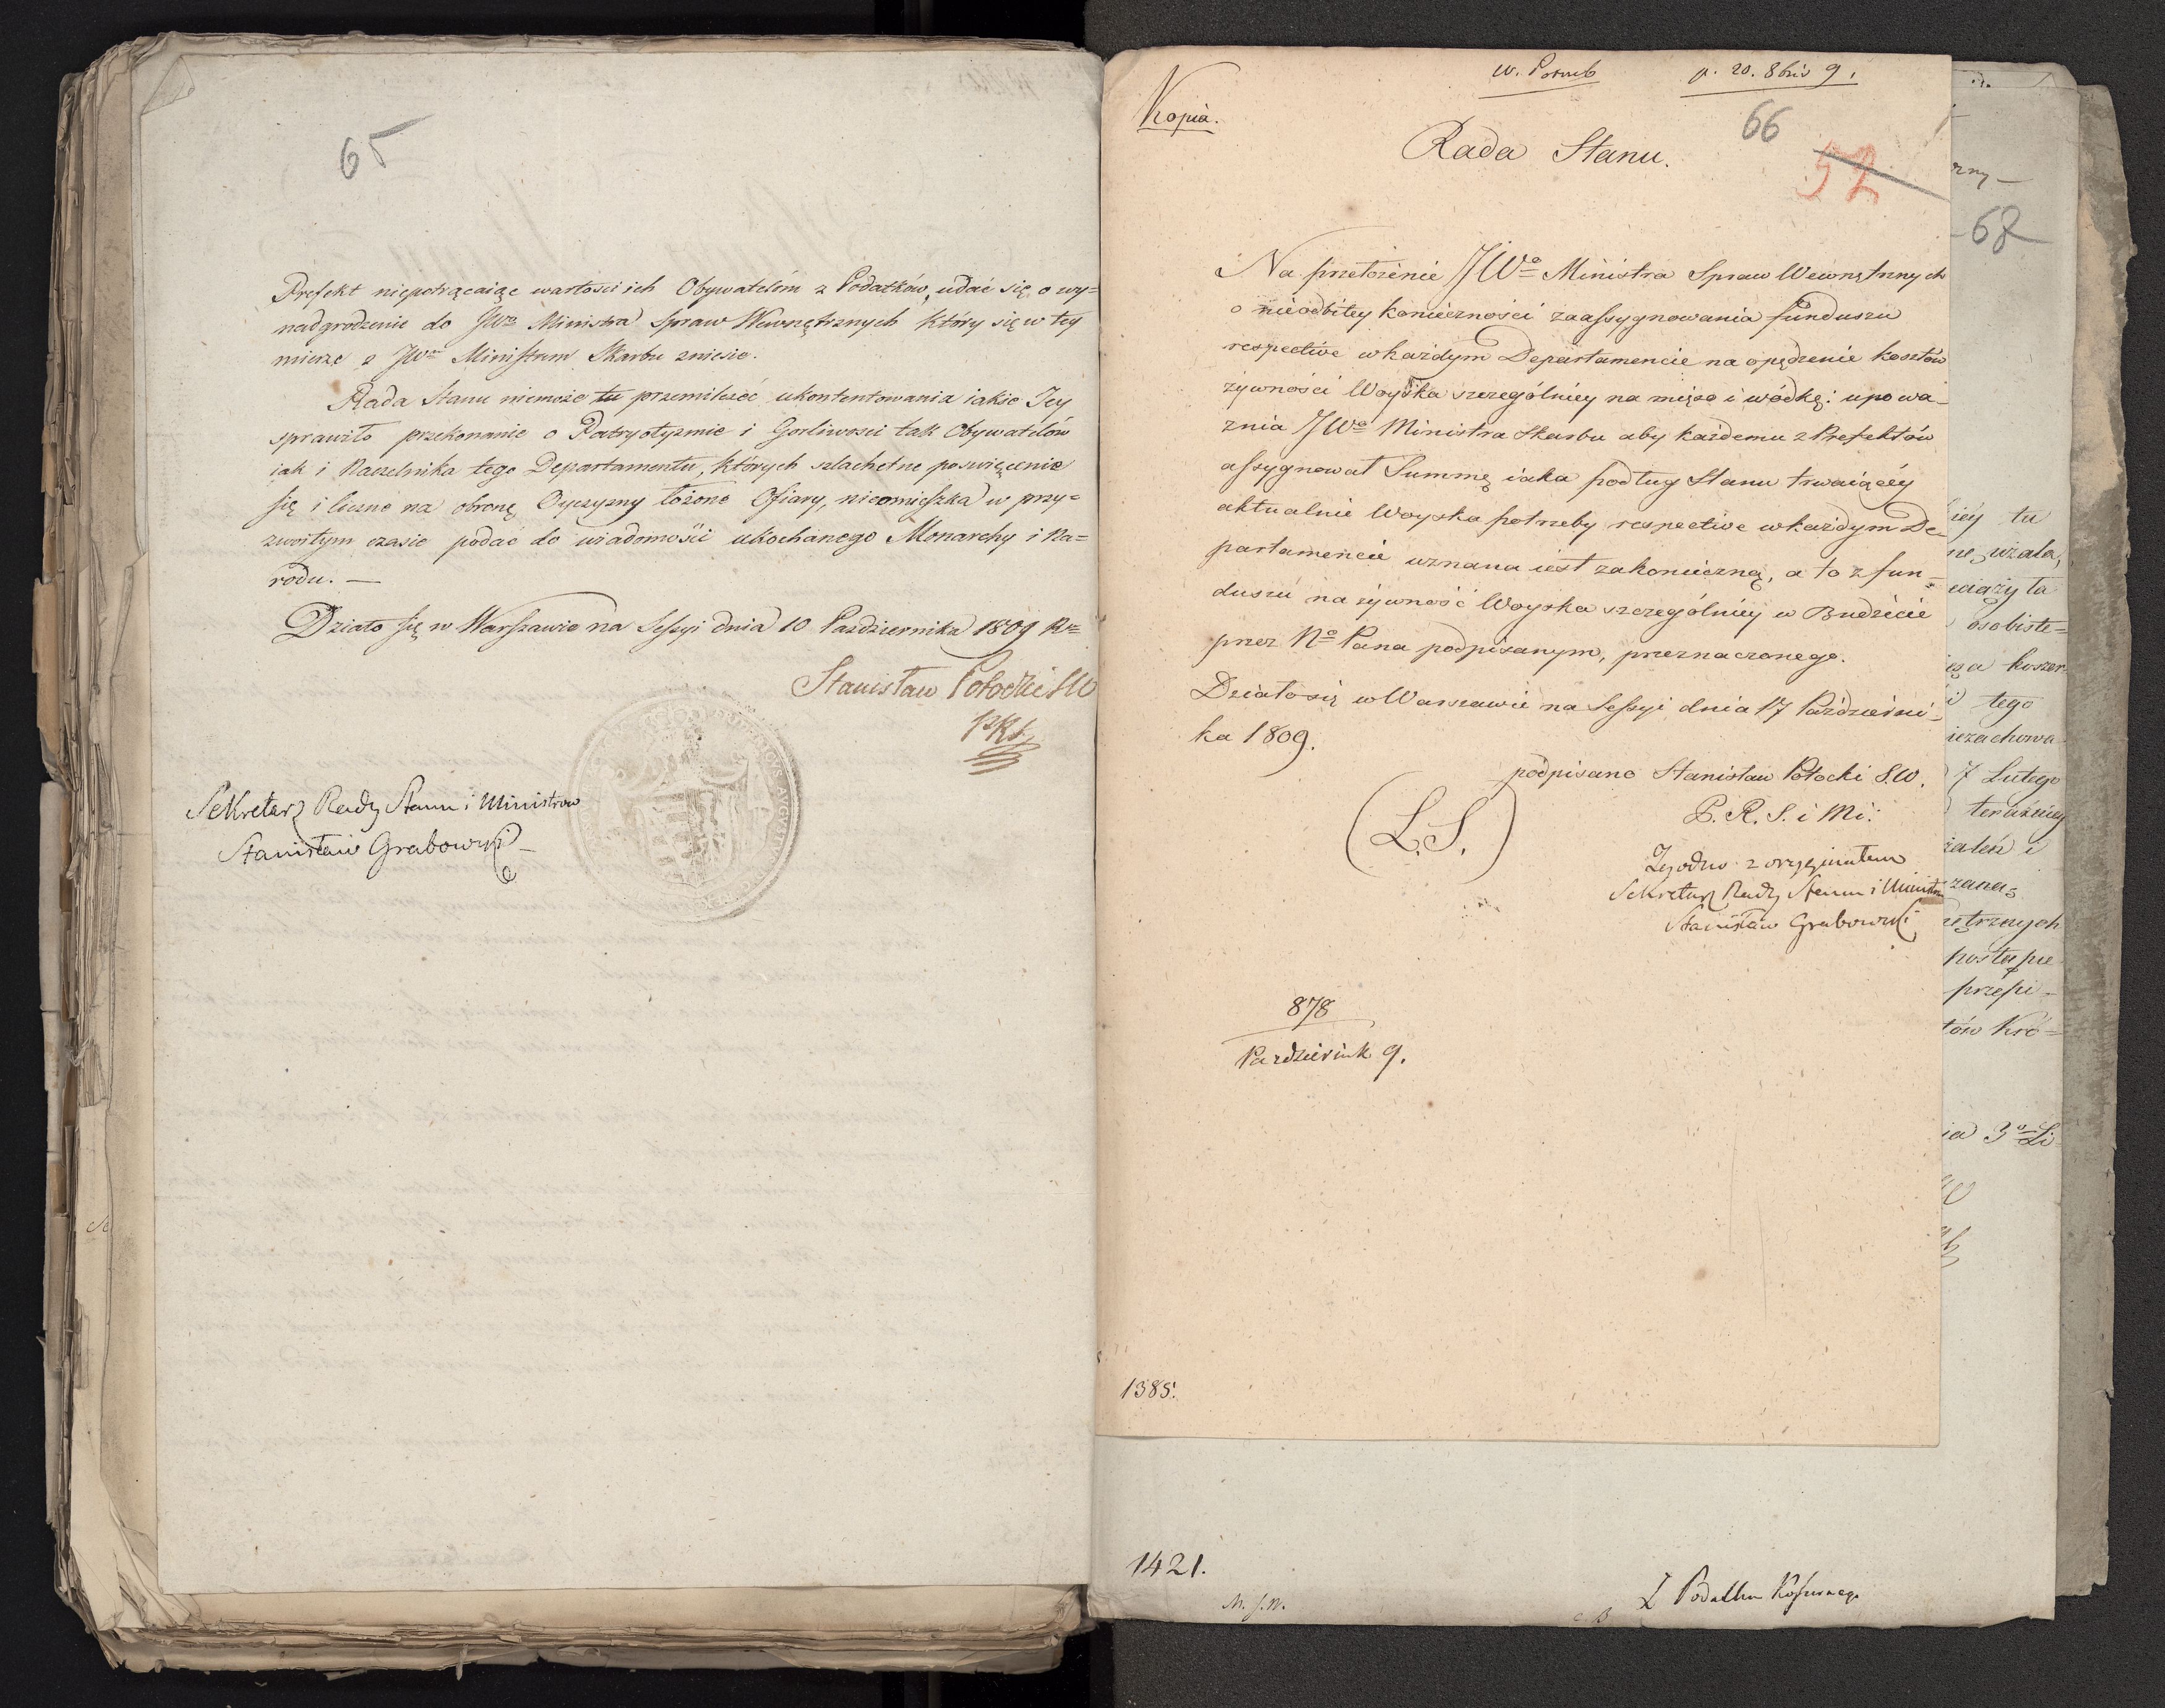 65
Prefekt niepotrącaiąc wartości ich Obywatelom z Podatków, udać się o wy=
nadgrodzenie do JWo Ministra Spraw Wewnętrznych który się w tey
mierze z JWm Ministrem Skarbu zniesie.
Rada Stanu niemoże tu przemilczeć ukontentowania iakie Jey
sprawiło przekonanie o Patryotyzmie i Gorliwości tak Obywatelów
iak i Naczelnika tego Departamentu, których szlachetne poświęcenie
się i liczne na obronę Oyczyzny łożone Ofiary, nieomieszka w przy=
zwoitym czasie podać do wiadomości ukochanego Monarchy i Na=
rodu. —
Działo się w Warszawie na Sessyi dnia 10 Października 1809 Rku
Stanisław Potocki SW
PRS
Sekretarz Rady Stanu i Ministrow
Stanisław Grabowski
Kopia.
p. 20. 8bris 9.
66
52
Rada Stanu.
Na przełożenie JWo Ministra Spraw Wewnętrznych
o nieodbitey konieczności zaassygnowania funduszu
respective w każdym Departamencie na opędzenie kosztów
żywności Woyska szczególniey na mięso i wódkę: upowa-
żnia JWo Ministra Skarbu aby każdemu z Prefektów
assygnował Summę iaka podług Stanu trwaiącéy
aktualnie Woyska potrzeby respective w każdym De-
partamencie uznana iest za konieczną, a to z fun=
duszu na żywność Woyska szczególniey w Budżecie
przez No Pana podpisanym, przeznaczonego.
Działo się w Warszawie na Sessyi dnia 17 Październi-
ka 1809.
podpisano Stanisław Potocki S.W.
P. R. S. i Mi:
(L.S.)
Zgodno z oryginałem
Sekretarz Rady Stanu i Ministr
Stanisław Grabowski
878
Pazdziernik 9.
1385.
1421.
M. S. W.
Z Podatku Koszernego
rzny —
68
iéy tu
osobiste=
koszer
tego
iezachowa
7 Lutego
teraźniey
zana
nętrznych
postąpie
przepi-
tów Kró=
ia 3o Li